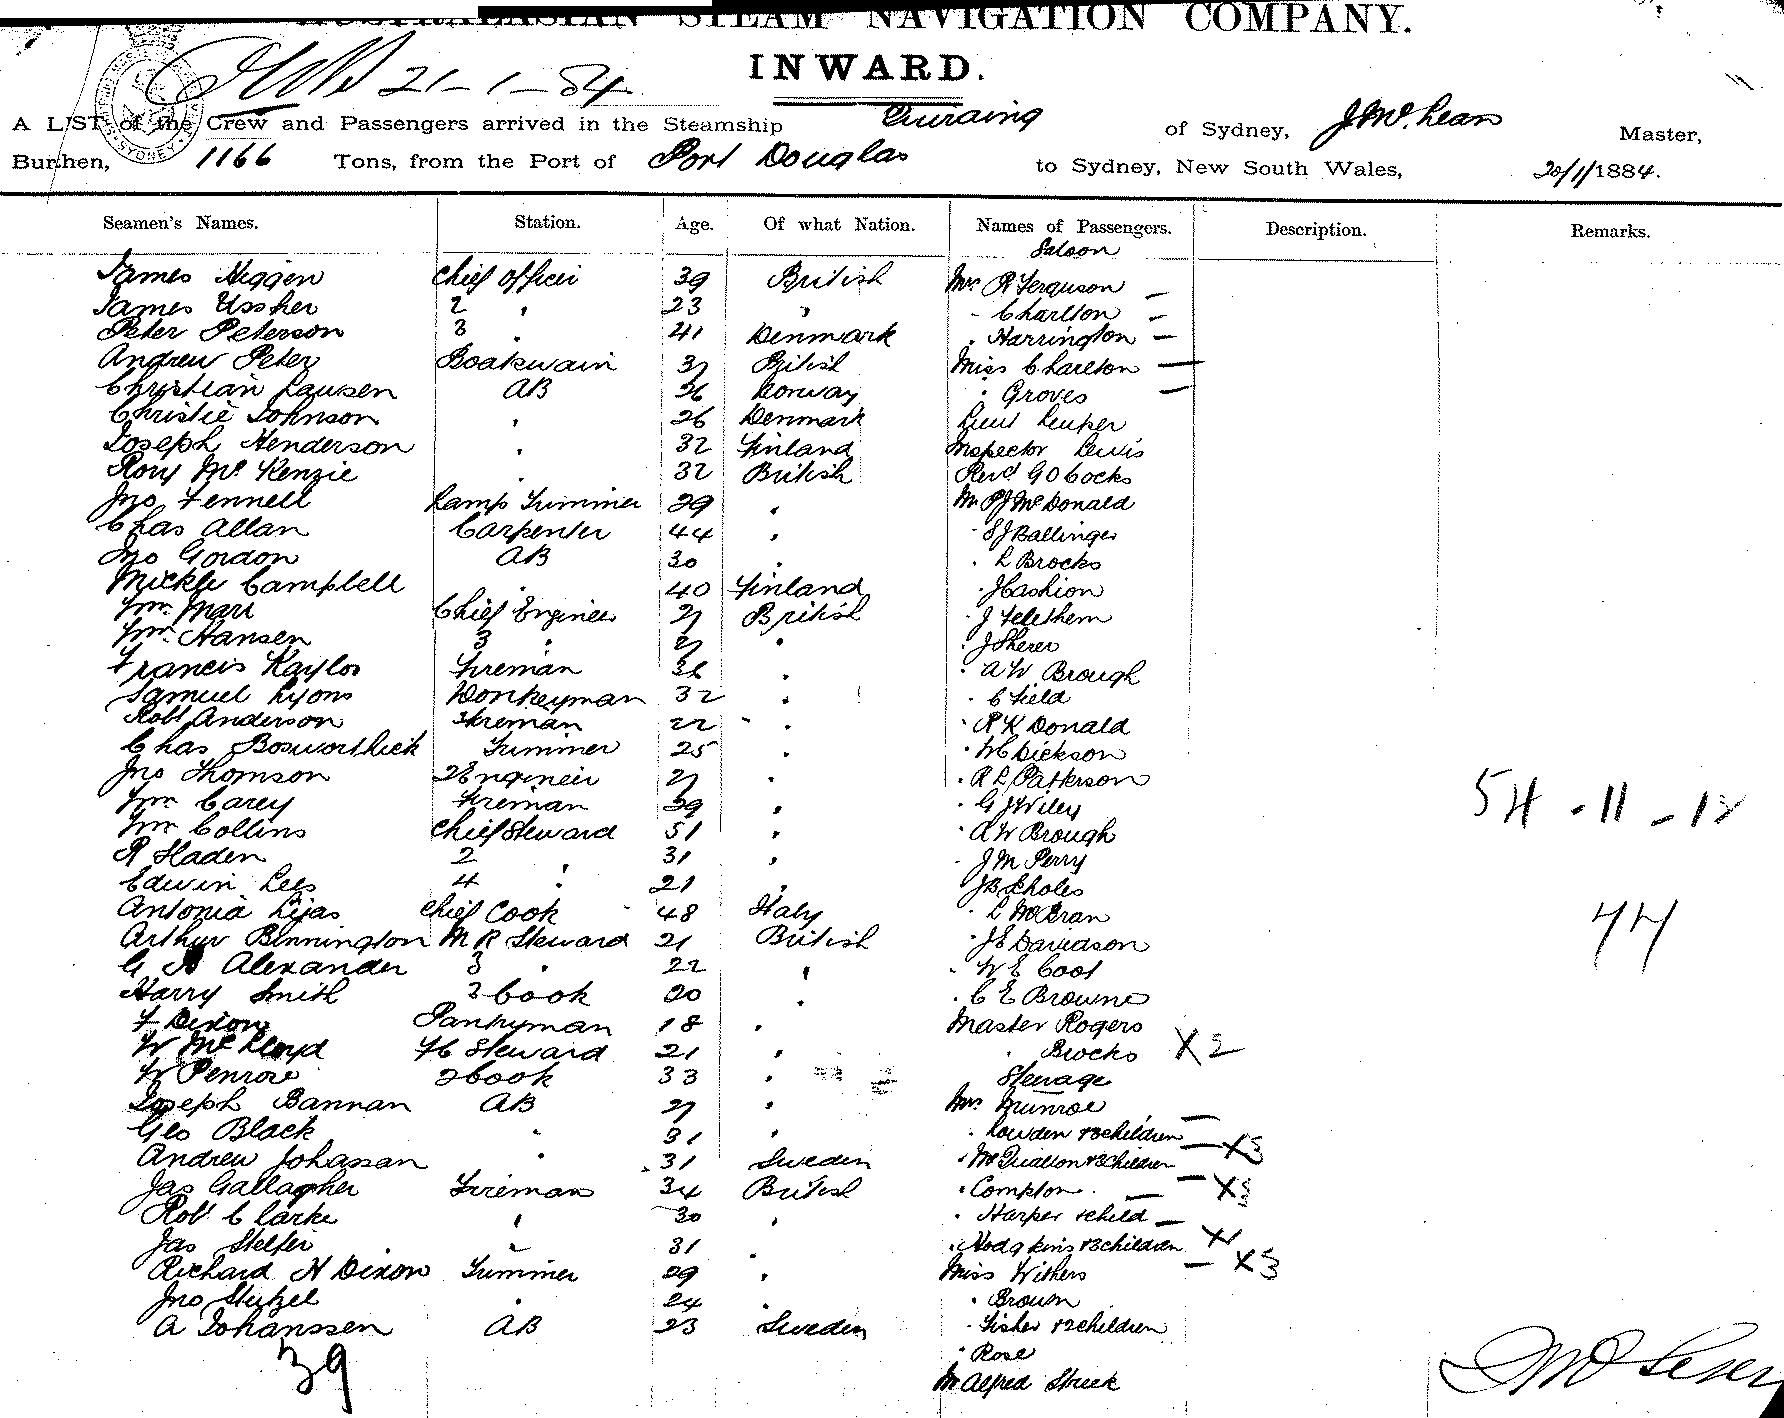 AUSTRALASIAN STEAM NAVIGATION COMPANY.
21-1-84
INWARD.
A LIST of the Crew and Passengers arrived in the Steamship of Sydney, J McLean Master,
Burthen, 1166 Tons, from the Port of Port Douglas to Sydney, New South Wales, 20/1/1884.
Seamen's Names. Station. Age. Of what Nation. Names of Passengers. Description. Remarks.
Saloon
James Higgen Chief Officer 39 British Mrs R Ferguson —
James Ussher 2 " 23 " " Charlton —
Peter Peterson 3 41 Denmark " Harrington —
Andrew Peter Boatswain 37 British Miss Charlton —
Christian Lausen AB 26 Norway " Groves —
Christie Johnson " 26 Denmark Lieut
Joseph Henderson " 32 Finland Inspector Lewis
Rory McKenzie " 32 British Revd G O Cocks
Jno Fennell Lamp Trimmer 29 " Mr P J McDonald
Chas Allan Carpenter 44 " " S J Ballinger
Jno Gordon AB 30 " " L Brocks
Mickle Campbell " 40 Finland " J Cashion
Wm Marr Chief Engineer 27 British " J
Wm Hansen 3 " 27 " " J Sherer
Francis Kaylor Fireman 36 " " A W Brough
Samuel Lyons Donkeyman 32 " " C Field
Robt Anderson Fireman 22 " " R K Donald
Chas Trimmer 25 " " W C Dickson
Jno Thomson 2 Engineer 27 " " R L Patterson
Wm Carey Fireman 39 " " G J Wiley
54 - 11 - 12
Wm Collins Chief Steward 51 " " A W Brough
R Sladen 2 31 " " J M Perry
Edwin Lees 4 " 21 " J B Scholes
Antonia Lijas Chief Cook 48 Italy " L
44
Arthur Bennington M R Steward 21 British " J E Davidson
G Alexander 3 " 22 " " W E Coot
Harry Smith 3 Cook 20 " " C E Browne
F Dixon Pantryman 18 " Master Rogers
W McLloyd F C Steward 21 " " Brocks X2
W Penrose 2 Cook 33 " Steerage
Joseph Bannan AB 27 " Mrs Munroe —
Geo Black " 31 " " Lowden & 3 children — X3
Andrew Johassan " 31 Sweden " & 3 Children — X3
Jas Gallagher Fireman 34 British " Compton —
Robt Clarke " 30 " " Harper & child — X1
Jas " 31 " " Hodgkins & 3 children — X3
Richard H Dixon Trimmer 29 " Miss Withers
Jno Stutzel " 24 " " Brown
A Johanssen AB 23 Sweden " Fisher & 2 children
39
" Rose
Mr Alfred
J McLean